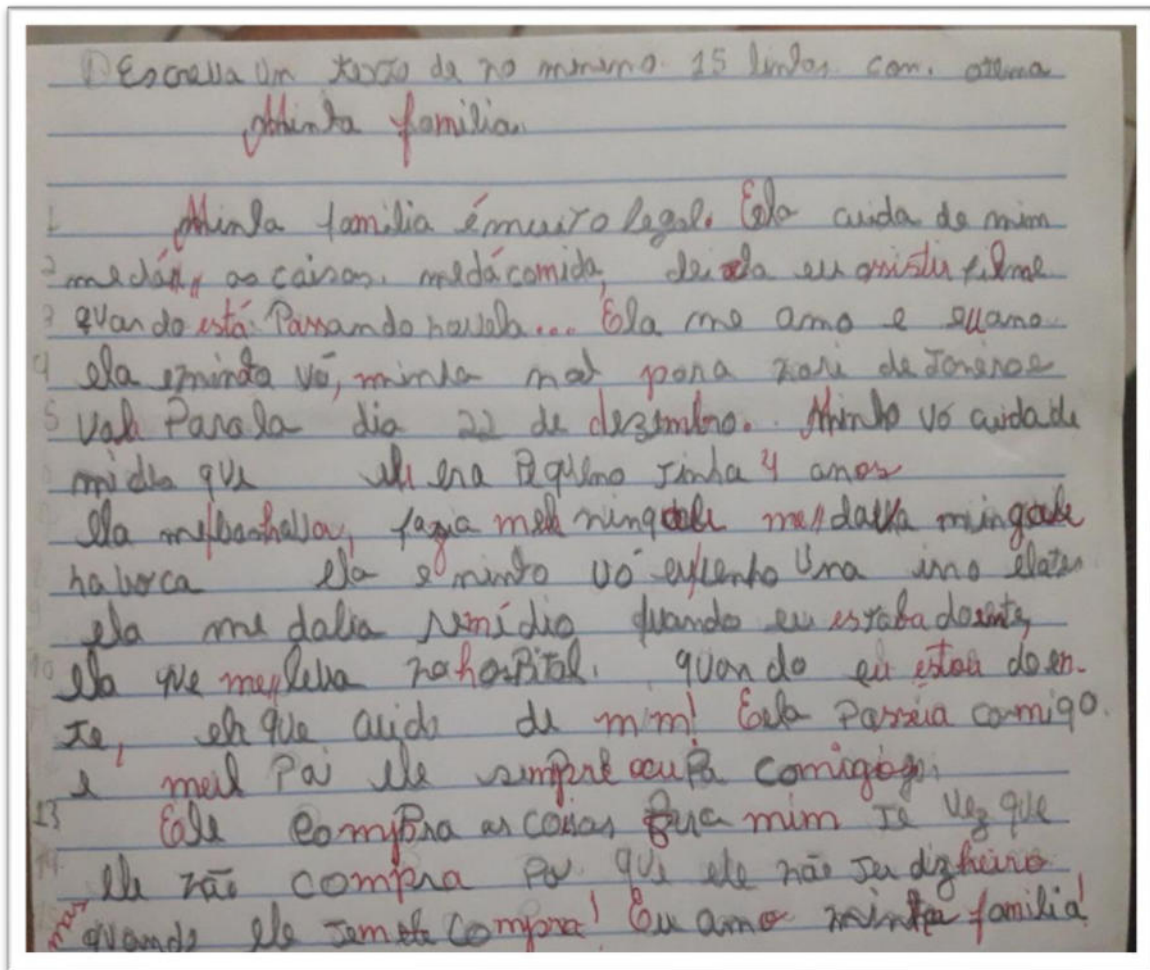 1) Escreva um texto de no minimo 15 linhas com. otema
Minha familia.
1 Minha família émuito legal. Ela cuida de mim
2 medá as coisas. medácomida, deixa eu asistir filme
3 quando está Passando novela... Ela me ama e euamo
4 ela eminha vó, minha mãe para de Janeiro e
5 Para la dia 22 de dezembro. Minha vó cuidade
mi que ele era Pequeno Tinha 4 anos
Ela me banhava, fazia me dava mingau
naboca ela e minha vó eutenho uma
ela me dava remídio quando eu estaba doente,
10 ela que me leva nohosPital. quando eu estou doen-
Te, ela que cuida de mim! Ela Passeia comigo.
e meu Pai ele sempre comigo
13 Ele compra as coisas Para mim Te vez que
14 ele não compra Por que ele não Tem dinheiro
mas quando ele Tem ele compra! Eu amo minha familia!